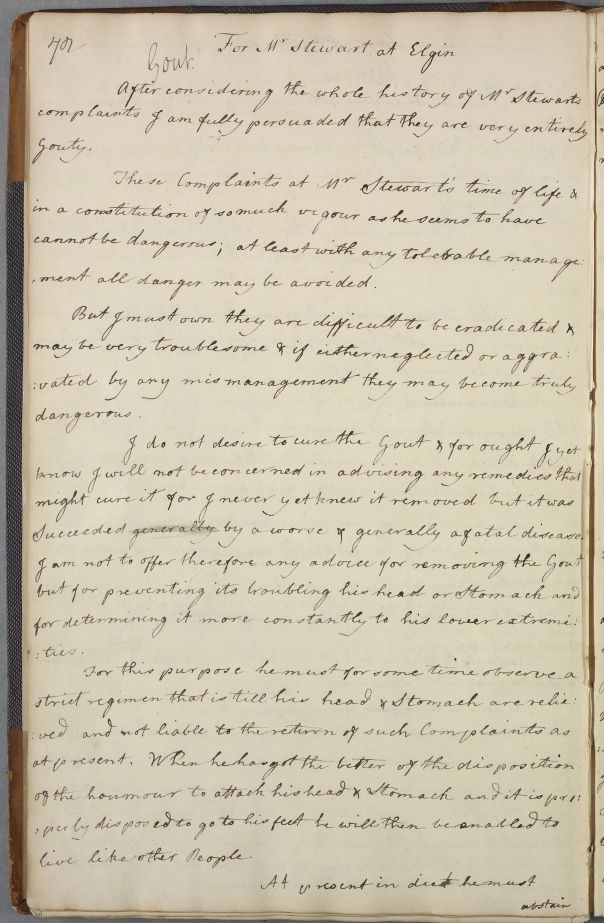 For Mr Stewart at Elgin
Gout.
After considering the whole history of Mr Stewarts
complaints I am fully persuaded that they are very entirely
gouty.
These Complaints at Mr Stewart's time of life &
in a constitution of so much vigour as he seems to have
cannot be dangerous; at least with any tolerable manage:
:ment all danger may be avoided.
But I must own they are difficult to be eradicated &
may be very troublesome & if either neglected or aggra:
:vated by any mismanagement they may become truly
dangerous.
I do not desire to cure the Gout & for ought I yet
know I will not be concerned in advising any remedies that
might cure it for I never yet knew it removed but it was
Succeeded generally by a worse & generally a fatal disease.
I am not to offer therefore any advice for removing the Gout
but for preventing its troubling his head or Stomach and
for determining it more constantly to his lower extremi:
:ties.
For this purpose he must for some time observe a
strict regimen that is till his head & Stomach are relie:
:ved and not liable to the return of such Complaints as
at present. When he has got the better of the disposition
of the houmour to attack his head & Stomach and it is pro:
:perly disposed to go to his feet he will then be enabled to
live like other People.
At present in diet he must
abstain